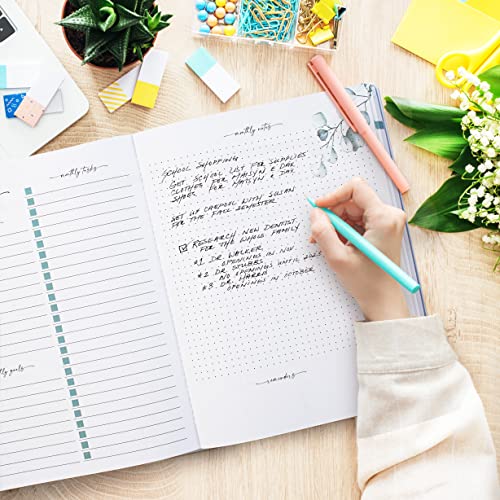 monthly tasks
monthly notes
SCHOOL SHOPPING
GET SCHOOL LIST FOR SUPPLIES
CLOTHES FOR MATSYN & DAX
SHOES FOR MATSYN & DAX
SET UP CARPOOL WITH SUSAN
FOR THE FALL SEMESTER
RESEARCH NEW DENTIST
FOR THE WHOLE FAMILY
#1 DR. WALKER
OPENINGS IN NOV
#2 DR. STUBBS
NO OPENINGS UNTIL
#3 DR. HARRIS
OPENINGS IN OCTOBER
goals
reminders